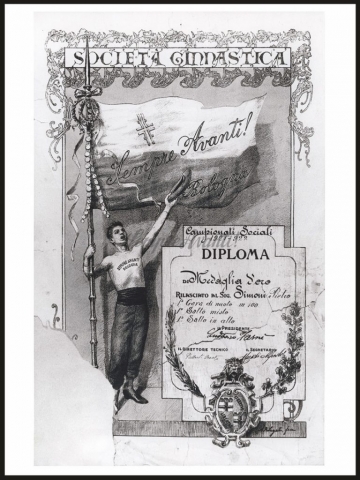 SOCIETÀ GINNASTICA
Sempre Avanti!
Bologna
SEMPRE AVANTI
BOLOGNA
Campionati Sociali
DIPLOMA
DI Medaglia d'oro
RILASCIATO AL SOC. Simoni Pietro
1° Gara di nuoto m 100
1° Salto misto
1° Salto in alto
IL PRESIDENTE
IL DIRETTORE TECNICO IL SEGRETARIO